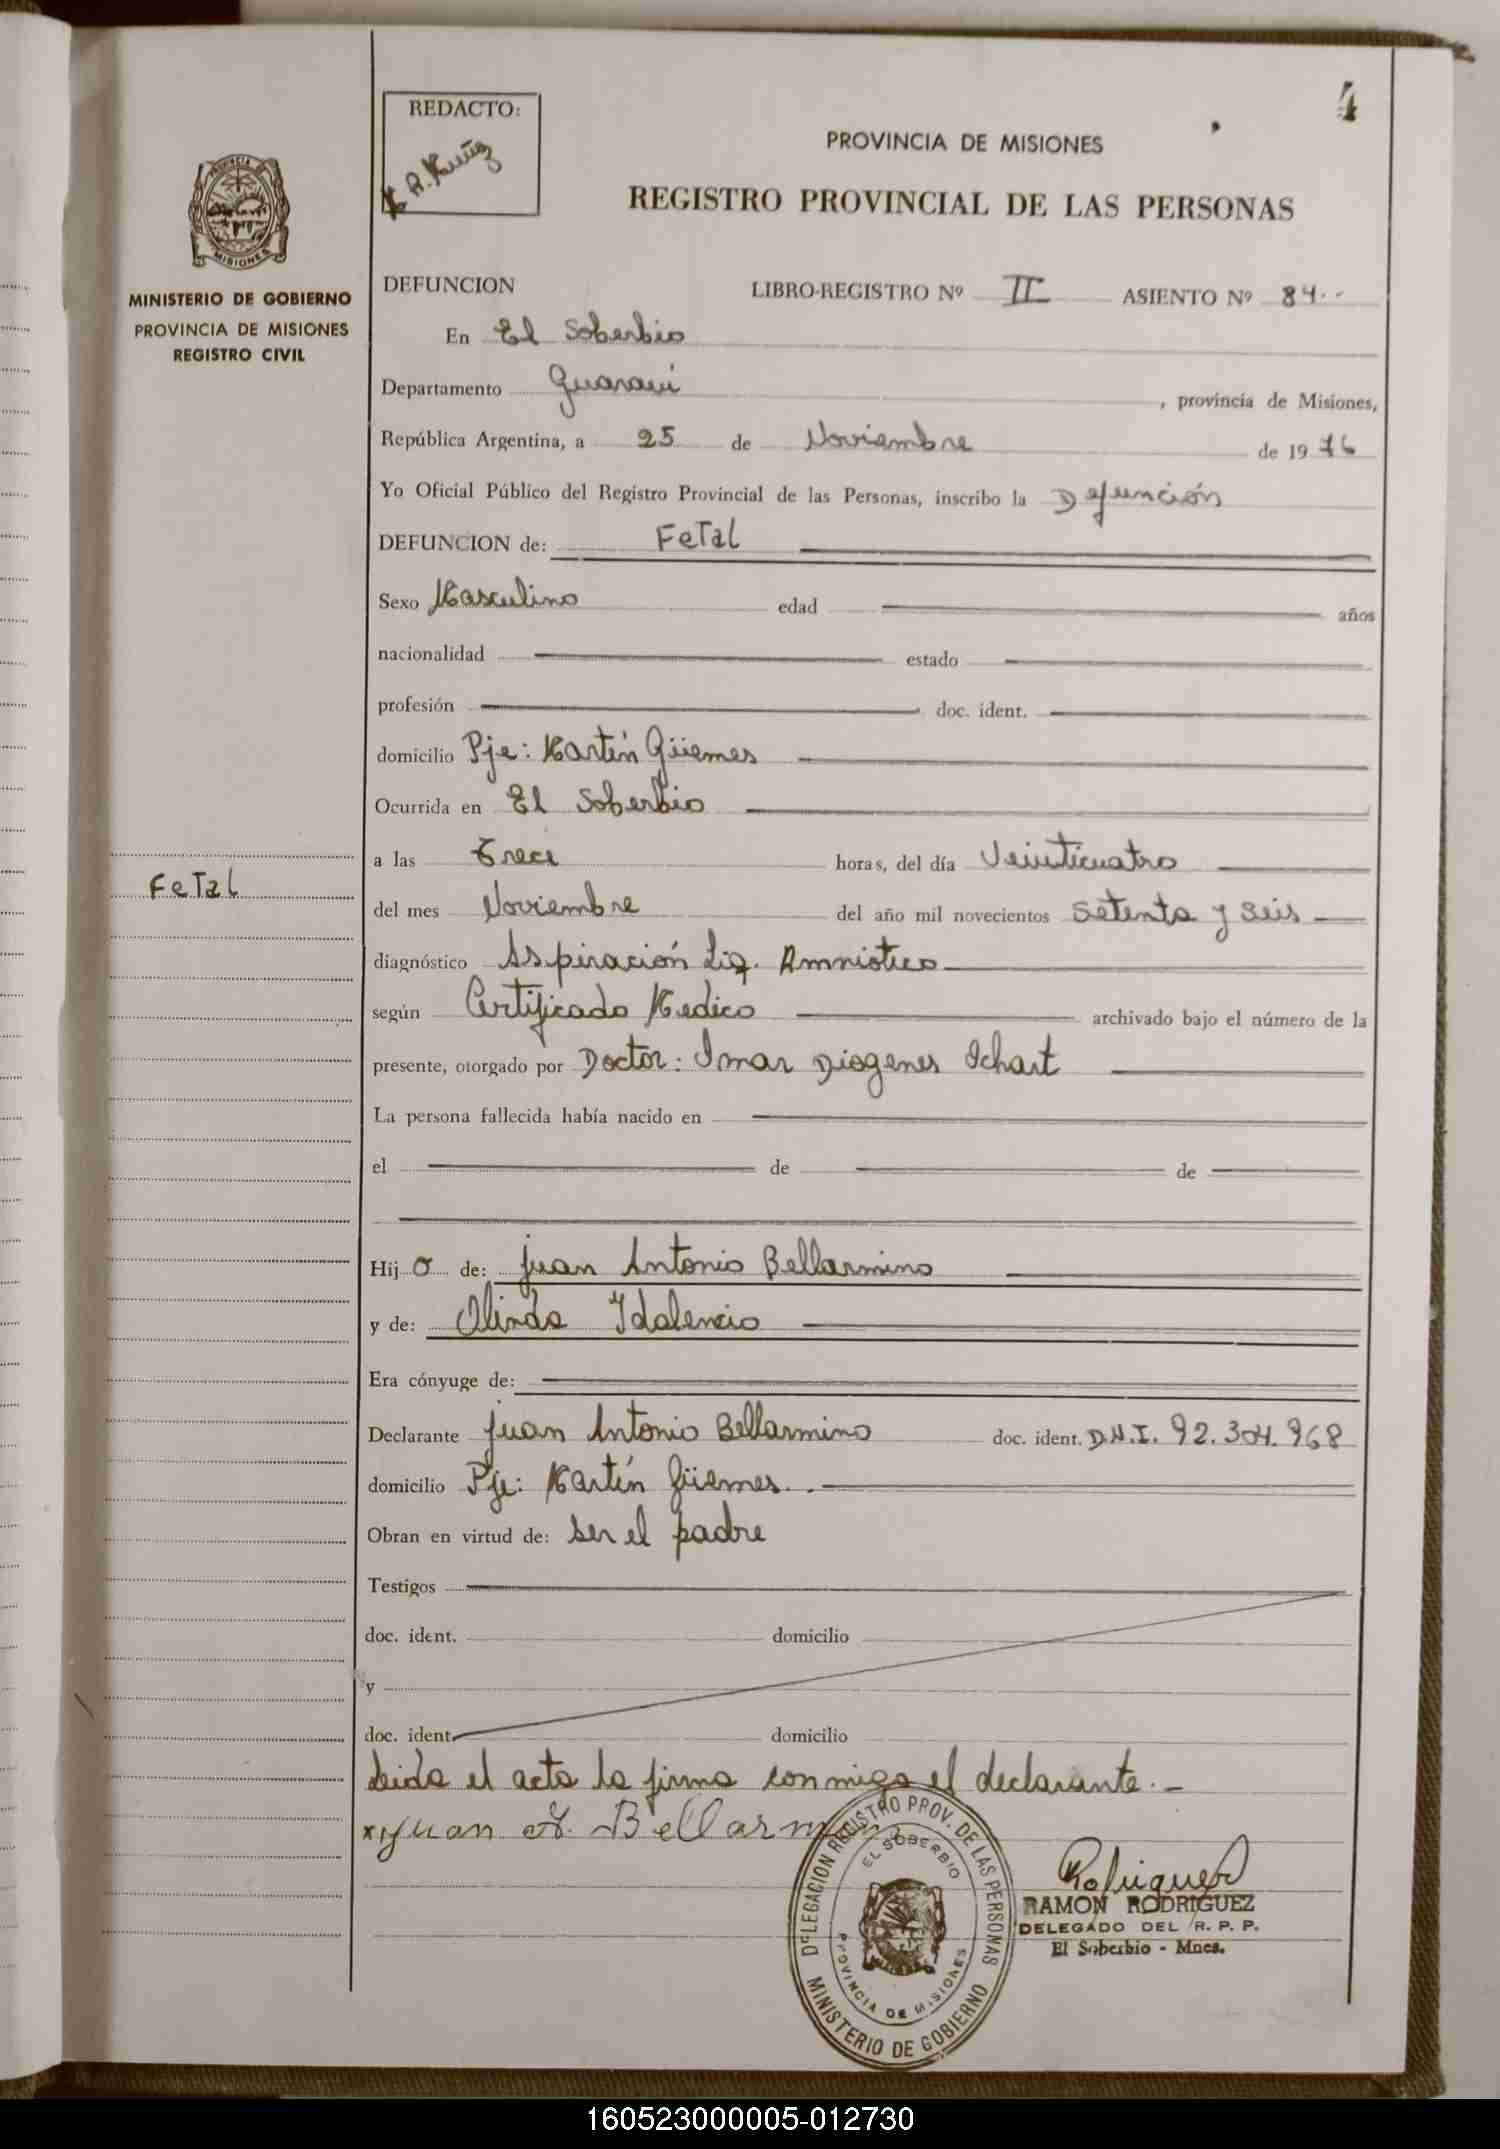 4
REDACTO:
PROVINCIA DE MISIONES
REGISTRO PROVINCIAL DE LAS PERSONAS
MISIONES
MINISTERIO DE GOBIERNO
PROVINCIA DE MISIONES
REGISTRO CIVIL
DEFUNCION LIBRO-REGISTRO Nº II ASIENTO Nº 84..
En El Soberbio
Departamento Guaraní, provincia de Misiones,
República Argentina, a 25 de Noviembre de 1976
Yo Oficial Público del Registro Provincial de las Personas, inscribo la Defunción
DEFUNCION de: FeTal
Sexo Masculino edad años
nacionalidad estado
profesión doc. ident.
domicilio Pje: Martín Güemes
Ocurrida en El Soberbio
a las Trece horas, del día Veinticuatro
FeTal
del mes Noviembre del año mil novecientos Setenta y Seis
diagnóstico Aspiración Liq. Amniotico
según Certificado Medico archivado bajo el número de la
presente, otorgado por Doctor: Imar Diogenes Ichart
La persona fallecida había nacido en
el de de
Hijo de: Juan Antonio Bellarmino
y de: Olinda Idalencio
Era cónyuge de:
Declarante Juan Antonio Bellarmino doc. ident. D.N.I. 92.304.968
domicilio Pje: Martín Güemes..
Obran en virtud de: ser el padre
Testigos
doc. ident. domicilio
y
doc. ident. domicilio
Leida el acta la firma conmigo el declarante.-
x Juan A. Bellarmino
DELEGACION REGISTRO PROV. DE LAS PERSONAS
EL SOBERBIO
PROVINCIA DE MISIONES
MINISTERIO DE GOBIERNO
Rodriguez
RAMON RODRIGUEZ
DELEGADO DEL R. P. P.
El Soberbio - Mnes.
160523000005-012730